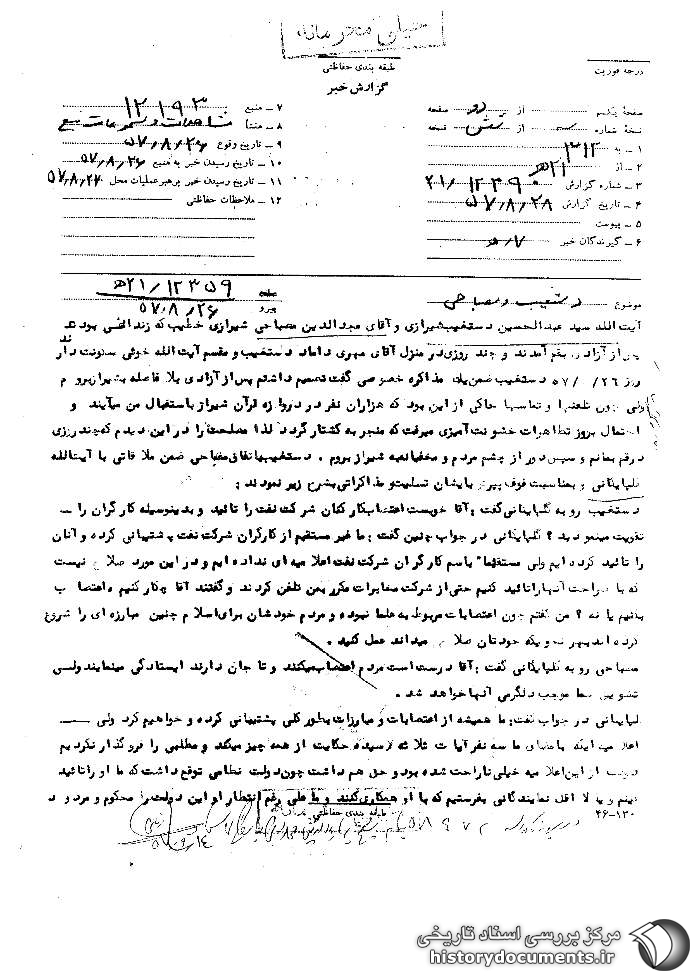 خیلی محرمانه
طبقه بندی حفاظتی
درجه فوریت
گزارش خبر
صفحه یکم از دو صفحه
نسخه شماره از شش نسخه
۱ – به ۳۱۲
۲ – از ۲۱ه‍
۳ – شماره گزارش ۲۱/۱۲۳۹۰
۴ – تاریخ گزارش ۵۷/۸/۲۸
۵ – پیوست
۶ – گیرندگان خبر
۷ – منبع ۱۲۱۹۳
۸ – منشأ مشاهدات و مسموعات منبع
۹ – تاریخ وقوع ۵۷/۸/۲۶
۱۰ – تاریخ رسیدن خبر به منبع ۵۷/۸/۲۶
۱۱ – تاریخ رسیدن خبر برهبر عملیات محل ۵۷/۸/۲۷
۱۲ – ملاحظات حفاظتی
موضوع دستغیب و مصباحی
پیرو ۲۱/۱۲۳۵۹ه‍
۵۷/۸/۲۶
آیت الله سید عبدالحسین دستغیب شیرازی و آقای مجدالدین مصباحی شیرازی خطیب که زندانی بودند
پس از آزادی بقم آمدند و چند روزی در منزل آقای مهری داماد دستغیب و مقسم آیت الله خوئی سکونت دارند
روز ۲۶/ /۵۷ دستغیب ضمن یک مذاکره خصوصی گفت تصمیم داشتم پس از آزادی بلا فاصله بشیراز بروم
ولی چون تلفنها و تماسها حاکی از این بود که هزاران نفر در دروازه قرآن شیراز باستقبال من میآیند و
احتمال بروز تظاهرات خشونت آمیزی میرفت که منجر به کشتار گردد لذا مصلحت را در این دیدم که چند روزی
در قم بمانم و سپس دور از چشم مردم و مخفیانه به شیراز بروم . دستغیب باتفاق مصباحی ضمن ملاقاتی با آیت الله
گلپایگانی و بمناسبت فوت بایشان تسلیت و مذاکراتی بشرح زیر نمودند :
دستغیب رو به گلپایگانی گفت : آقا خوبست اعتصاب کارکنان شرکت نفت را تائید و بدینوسیله کارگران را
تقویت مینمودید ؟ گلپایگانی در جواب چنین گفت : ما غیر مستقیم از کارگران شرکت نفت پشتیبانی کرده و آنان
را تائید کرده ایم ولی مستقیما" باسم کارگران شرکت نفت اعلامیه ای نداده ایم و در این مورد صلاح نیست
که با صراحت آنها را تائید کنیم حتی از شرکت مخابرات مکرر بمن تلفن کردند و گفتند آقا چکار کنیم اعتصاب
بکنیم یا نه ؟ من گفتم چون اعتصابات مربوط به علما نبوده و مردم خودشان برای اسلام چنین مبارزه ای را شروع
کرده اند بهر نحویکه خودتان صلاح میدانید عمل کنید .
مصباحی رو به گلپایگانی گفت : آقا درست است مردم اعتصاب میکنند و تا جان دارند ایستادگی مینمایند ولی
تشویق شما موجب دلگرمی آنها خواهد شد .
گلپایگانی در جواب گفت : ما همیشه از اعتصابات و مبارزات بطور کلی پشتیبانی کرده و خواهیم کرد ولی
اعلامیه اینکه بامضای ما سه نفر آیات ثلاثه رسیده حکایت از همه چیز میکند و مطلبی را فروگذار نکردیم
دولت از این اعلامیه خیلی ناراحت شده بود و حق هم داشت چون دولت نظامی توقع داشت که ما او را تائید
کنیم و یا لا اقل نمایندگانی بفرستیم که با او همکاری کنند و ما علی رغم انتظار او این دولت را محکوم و مردود
طبقه بندی حفاظتی
۴۶-۱۳۰
مرکز بررسی اسناد تاریخی
historydocuments.ir